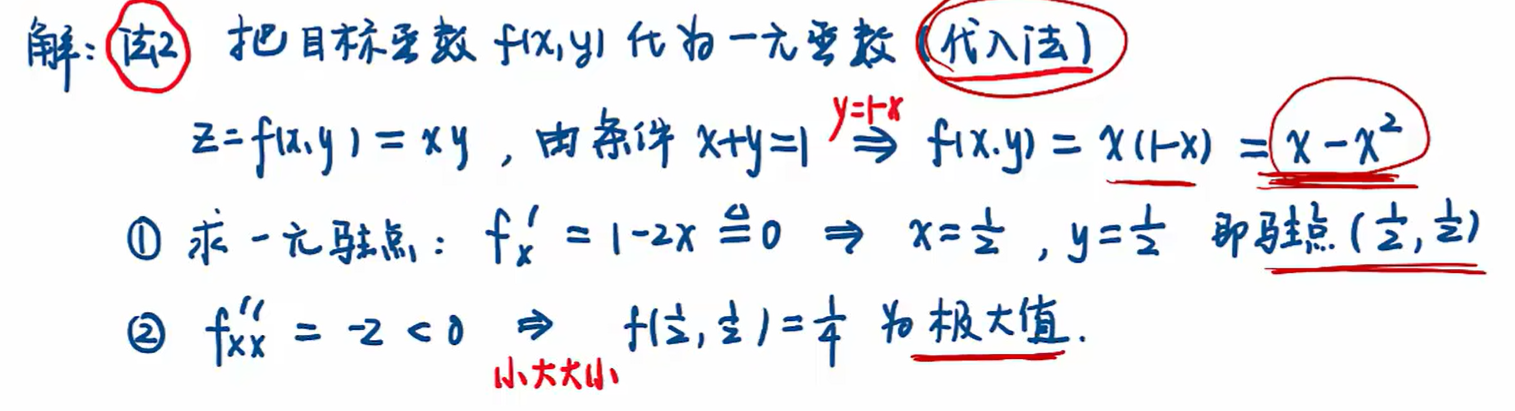 解: 法2 把目标函数 f(x,y) 代为一元函数 (代入法)
y=1-x
z=f(x,y)=xy, 由条件 x+y=1 ⇒ f(x.y)=x(1-x)=x-x²
① 求一元驻点: fₓ′=1-2x≜0 ⇒ x=1/2, y=1/2 即驻点(1/2,1/2)
② fₓₓ″=-2<0 ⇒ f(1/2,1/2)=1/4 为极大值.
小大大小